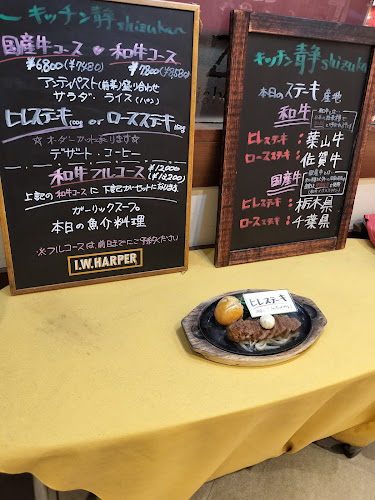 キッチン静shizuka
国産牛コース 和牛コース
¥6800(¥7480) ¥7800(¥8580)
アンティパスト(前菜)盛り合わせ
サラダ. ライス(パン)
ヒレステーキ100g or ロースステーキ150g
☆オーダーカット承ります☆
デザート・コーヒー
和牛フルコース ¥12,000(¥13,200)
上記の和牛コースに下記がセットになります。
ガーリックスープ
本日の魚介料理
※フルコースは、前日までにご予約ください
I.W.HARPER
キッチン静shizuka
本日のステーキ産地
和牛
ヒレステーキ:葉山牛
ロースステーキ:佐賀牛
国産牛
ヒレステーキ:栃木県
ロースステーキ:千葉県
ヒレステーキ